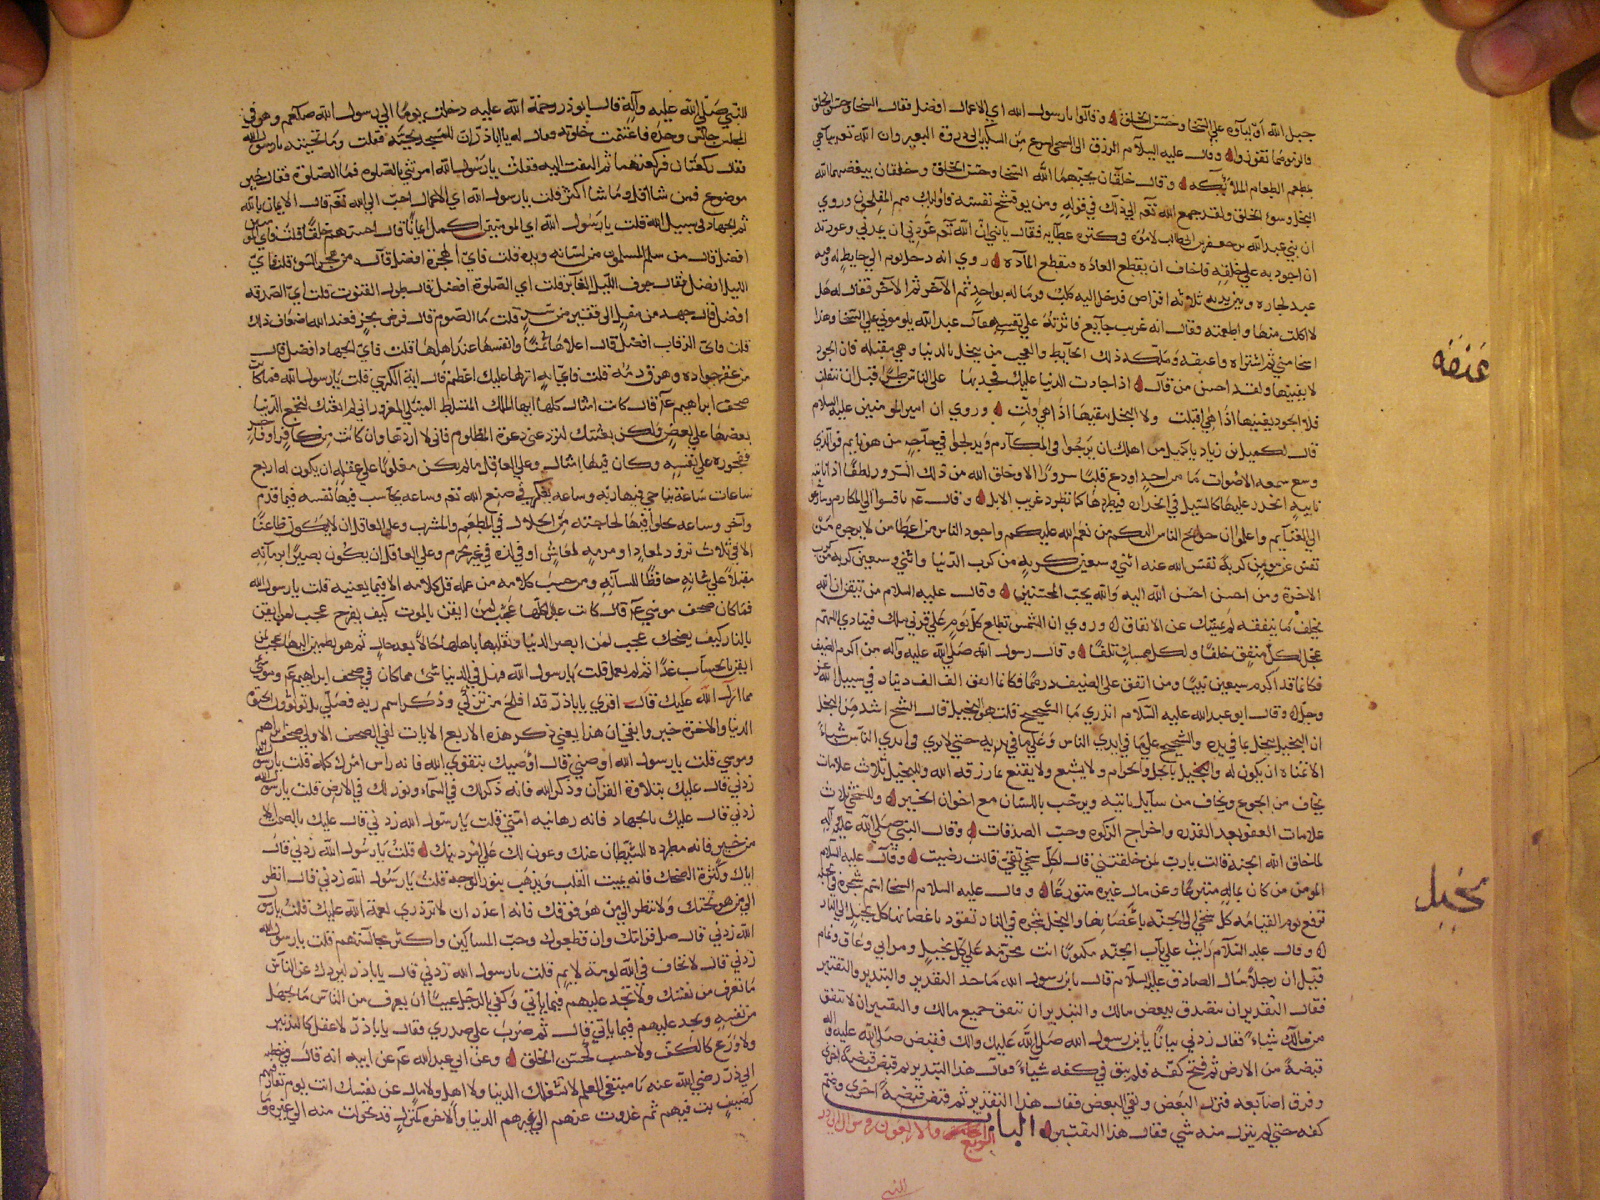 جبل الله اوليآوه علي السخا وحسن الخلق وقالوا يا رسول الله اي الاعمال افضل فقال السخا وحسن الخلق
فالزموهما تفوزوا وقال عليه السلام الرزق الى السخي اسرع من السكين الى ذروة البعير وان الله تعم يباهي
بمطعم الطعام الملائكه وقال خلقان يحبهما الله السخا وحسن الخلق وخلقان يبغضهما الله
البخل وسوء الخلق ولقد جمع الله تعم الى ذلك في قوله ومن يوق شح نفسه فاولئك هم المفلحون وروي
ان بني عبد الله بن جعفر في كثره عطآيه فقال يا بني ان الله تعم عودني ان يمدني وعودته
ان اجود به علي خلقه فاخاف ان يقطع العاده فيقطع المآده روي انه دخل يوم الي حايط له وفيه
عبد لجاره وبين يديه ثلاثه اقراص فدخل اليه كلب فرما له بواحد ثم الآخر ثم الآخر فقال له هل
لا اكلت منها واطعمته فقال انه غريب جآيع فاثرته علي نفسي فقال عبد الله يلوموني علي السخا وهذا
اسخا مني ثم اشتراه واعتقه وملكه ذلك الحآيط والعجب من يبخل بالدنيا وهي مقبله فان الجود
لا يفنيها ولقد احسن من قال اذا جادت الدنيا عليك فجد بها علي الناس طرا قبل ان تتفلت
فلا الجود يفنيها اذا هي اقبلت ولا البخل يبقيها اذا هي ولت وروي ان امير المومنين عليه السلام
قال لكميل بن زياد يا كميل مر اهلك ان يرجوا في المكآرم ويدلجوا في حآجه من هو نآيم فوالذي
وسع سمعه الاصوات ما من احد اودع قلبا سرورا الا وخلق الله من ذلك السرور لطفا اذا نابته
نآيبه انحدر عليها كالسيل في انحداره فيطردها كما تطرد غريب الابل وقال عم نافسوا الي المكارم
الي الغنآيم واعلموا ان حوآيج الناس اليكم من نعم الله عليكم واجود الناس من اعطا من لا يرجوه من
نفس عن مومن كربة نفس الله عنه اثني وسبعين كربة من كرب الدنيا واثني وسبعين كربه من كرب
الاخرة ومن احسن احسن الله اليه والله يحب المحسنين وقال عليه السلام من تيقن ان الله
يخلف ما ينفقه لم يمسك عن الانفاق وروي ان الشمس تطلع كل يوم علي قرني ملك فينادي اللهم
عجل لكل منفق خلفا ولكل ممسك تلفا وقال رسول الله صلي الله عليه وآله من اكرم الضيف
فكانما قد اكرم سبعين نبيا ومن انفق علي الضيف درهما فكانما انفق الف الف دينار في سبيل الله عز
وجل وقال ابو عبد الله عليه السلام اتدري ما الشحيح قلت هو البخيل قال الشح اشد من البخل
ان البخيل يبخل بما في يده والشحيح علي ما في ايدي الناس وعلي ما في يديه حتي لا يري في ايدي الناس شياء
الا تمناه ان يكون له بالحل والحرام ولا يشبع ولا يقنع بما رزقه الله وللبخيل ثلاث علامات
يخاف من الجوع ويخاف من سآيل ياتيه ويرحب باللسان مع اخوان الخير وللسخي ثلاث
علامات العفو بعد القدره واخراج الزكوه وحب الصدقات وقال النبي صلي الله عليه وآله
لما خلق الله الجنة قالت يا رب لمن خلقتني قال لكل سخي تقي قالت رضيت وقال عليه السلام
المومن من كان بماله متبرعا وعن مال غيره متورعا وقال عليه السلام السخا اسم شجرة في الجنه
ترفع يوم القيامه كل سخي الى الجنه باغصانها والبخل شجره في النار تقود باغصانها كل بخيل الى النار
وقال عليه السلام رايت علي باب الجنه مكتوبا انت محرمه علي كل بخيل ومرايي وعاق ونمام
قيل ان رجلا سال الصادق عليه السلام فقال يا بن رسول الله ما حد التقدير والتبذير والتقتير
فقال التقدير ان تتصدق ببعض مالك والتبذير ان تنفق جميع مالك والتقتير ان لا تنفق
من مالك شياء فقال زدني بيانا يا بن رسول الله صلي الله عليك والك فقبض صلي الله عليه واله
قبضة من الارض ثم فتح كفه فلم يبق في كفه شياء فقال هذا التبذير ثم قبض قبضة اخري
وفرق اصابعه فنزل البعض وبقي البعض فقال هذا التقدير ثم قبض قبضة اخري وضم
كفه حتي لم ينزل منه شي فقال هذا التقتير الباب الرابع والاربعون في سوال ابي ذر
بخيل
للنبي صلي الله عليه وآله قال ابو ذر رحمة الله عليه دخلت يوما الي رسول الله صلعم وهو في
المجلس جالس وحده فاغتنمت خلوته فقال له يا ابا ذر ان للمسجد تحية فقلت وما تحيته يا رسول الله
فقال ركعتان فركعتهما ثم التفت اليه فقلت يا رسول الله امرتني بالصلوه فما الصلوة فقال خير
موضوع فمن شا اقل ومن شا اكثر قلت يا رسول الله اي الاعمال احب الي الله تعم قال الايمان بالله
ثم الجهاد في سبيل الله قلت يا رسول الله اي المومنين اكمل ايمانا قال احسنهم خلقا قلت فاي المومنين
افضل قال من سلم المسلمون من لسانه ويده قلت فاي الهجرة افضل قال من هجر السوء قلت فاي
الليل افضل فقال جوف الليل الغابر قلت اي الصلوة افضل قال طول القنوت قلت اي الصدقه
افضل قال جهد من مقل الى فقير في سر قلت ما الصوم قال فرض يجزي وعند الله اضعاف ذلك
قلت فاي الرقاب افضل قال اغلاها ثمنا وانفسها عند اهلها قلت فاي الجهاد افضل قال
من عقر جواده وهرق دمه قلت فاي ايه انزلها عليك اعظم قال اية الكرسي قلت يا رسول الله فما كانت
صحف ابراهيم عم قال كانت امثال كلها ايها الملك المتسلط المبتلي المغرور اني لم ابعثك لتجمع الدنيا
بعضها علي بعض ولكن بعثتك لترد عني دعوة المظلوم فاني لا اردها وان كانت من كافر او فاجر
ففجوره علي نفسه وكان فيها امثال وعلي العاقل ما لم يكن مغلوبا علي عقله ان يكون له اربع
ساعات ساعة يناجي فيها ربه وساعه يفكر في صنع الله تعم وساعه يحاسب فيها نفسه فيما قدم
واخر وساعه يخلوا فيها لحاجته من الحلال في المطعم والمشرب وعلي العاقل ان لا يكون ظاعنا
الا في ثلاث تزود لمعاد او مرمه لمعاش او في لذه في غير محرم وعلي العاقل ان يكون بصيرا بزمانه
مقبلا علي شانه حافظا للسانه ومن حسب كلامه من عمله قل كلامه الا فيما يعنيه قلت يا رسول الله
فما كان صحف موسي عم قال كانت عبرا كلها عجب لمن ايقن بالموت كيف يفرح عجب لمن ايقن
بالنار كيف يضحك عجب لمن ابصر الدنيا وتقلبها باهلها حالا بعد حال ثم هو يطمئن اليها عجب لمن
ايقن بالحساب غدا ثم لم يعمل قلت يا رسول الله فهل في الدنيا شيء مما كان في صحف ابراهيم عم وموسي
مما انزل الله عليك قال اقري يا ابا ذر قد افلح من تزكي وذكر اسم ربه فصلي بل توثرون الحيوة
الدنيا والاخرة خير وابقي ان هذا يعني ذكر هذه الاربع الايات لفي الصحف الاولي صحف ابراهيم
وموسي قلت يا رسول الله اوصني قال اوصيك بتقوي الله فانه راس امرك كله قلت يا رسول الله
زدني قال عليك بتلاوة القرآن وذكر الله فانه ذكر لك في السمآء ونور لك في الارض قلت يا رسول الله
زدني قال عليك بالجهاد فانه رهبانيه امتي قلت يا رسول الله زدني قال عليك بالصمت الا
من خير فانه مطرده للشيطان عنك وعون لك علي امر دينك قلت يا رسول الله زدني قال
اياك وكثرة الضحك فانه يميت القلب ويذهب بنور الوجه قلت يا رسول الله زدني قال انظر
الي من هو تحتك ولا تنظر الي من هو فوقك فانه اجدر ان لا تزدري نعمة الله عليك قلت يا رسول
الله زدني قال صل قرابتك وان قطعوك وحب المساكين واكثر مجالستهم قلت يا رسول الله
زدني قال لا تخاف في الله لومة لايم قلت يا رسول الله زدني قال يا ابا ذر ليردك عن الناس
ما تعرف من نفسك ولا تجد عليهم فيما ياتي وكفي بالرجل عيبا ان يعرف من الناس ما يجهل
من نفسه ويجد عليهم فيما ياتي قال ثم ضرب علي صدري فقال يا ابا ذر لا عقل كالتدبير
ولا ورع كالكف ولا حسب كحسن الخلق وعن ابي عبد الله عم عن ابيه انه قال في خطبه
ابي ذر رضي الله عنه يا مبتغي العلم لا تشغلك الدنيا ولا اهل ولا مال عن نفسك انت يوم تفارقهم
كضيف بت فيهم ثم غدوت عنهم الي غيرهم الدنيا والاخره كمنزل قد تحولت منه الي غيره